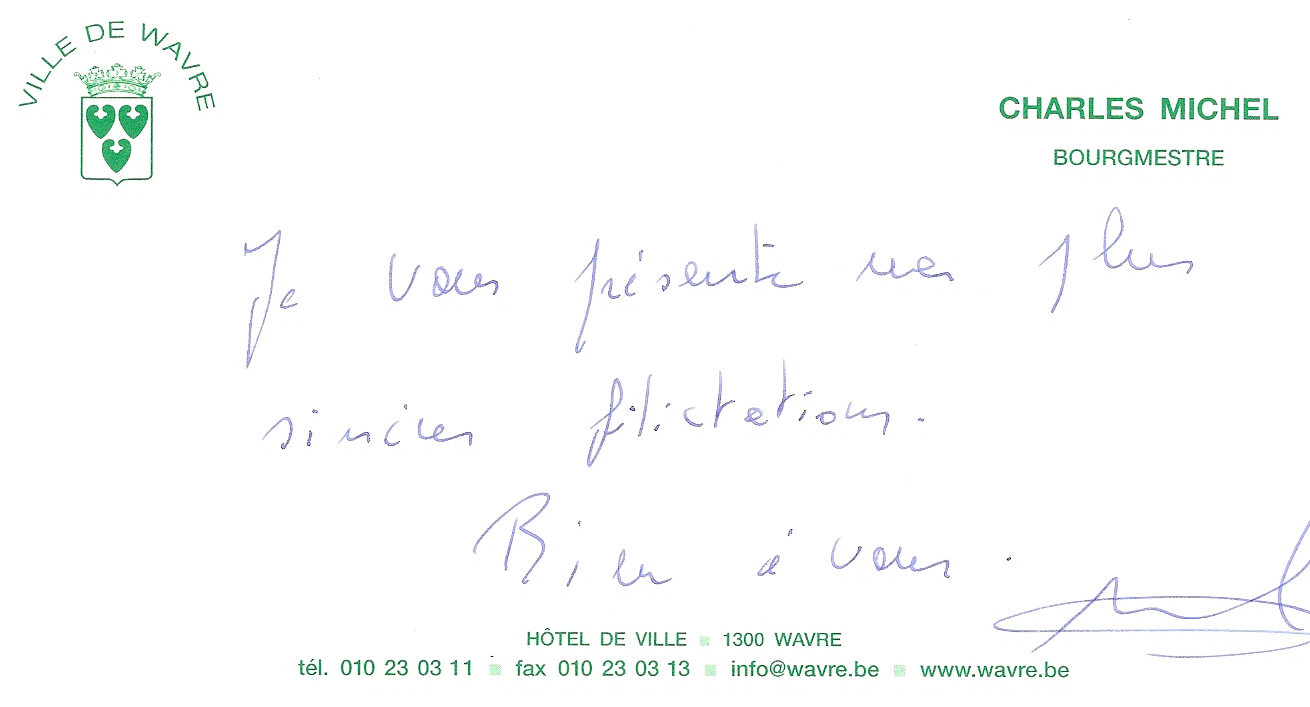 VILLE DE WAVRE
CHARLES MICHEL
BOURGMESTRE
Je vous présente mes plus
sincères félicitations.
Bien à vous.
HÔTEL DE VILLE ▪ 1300 WAVRE
tél. 010 23 03 11 ▪ fax 010 23 03 13 ▪ info@wavre.be ▪ www.wavre.be